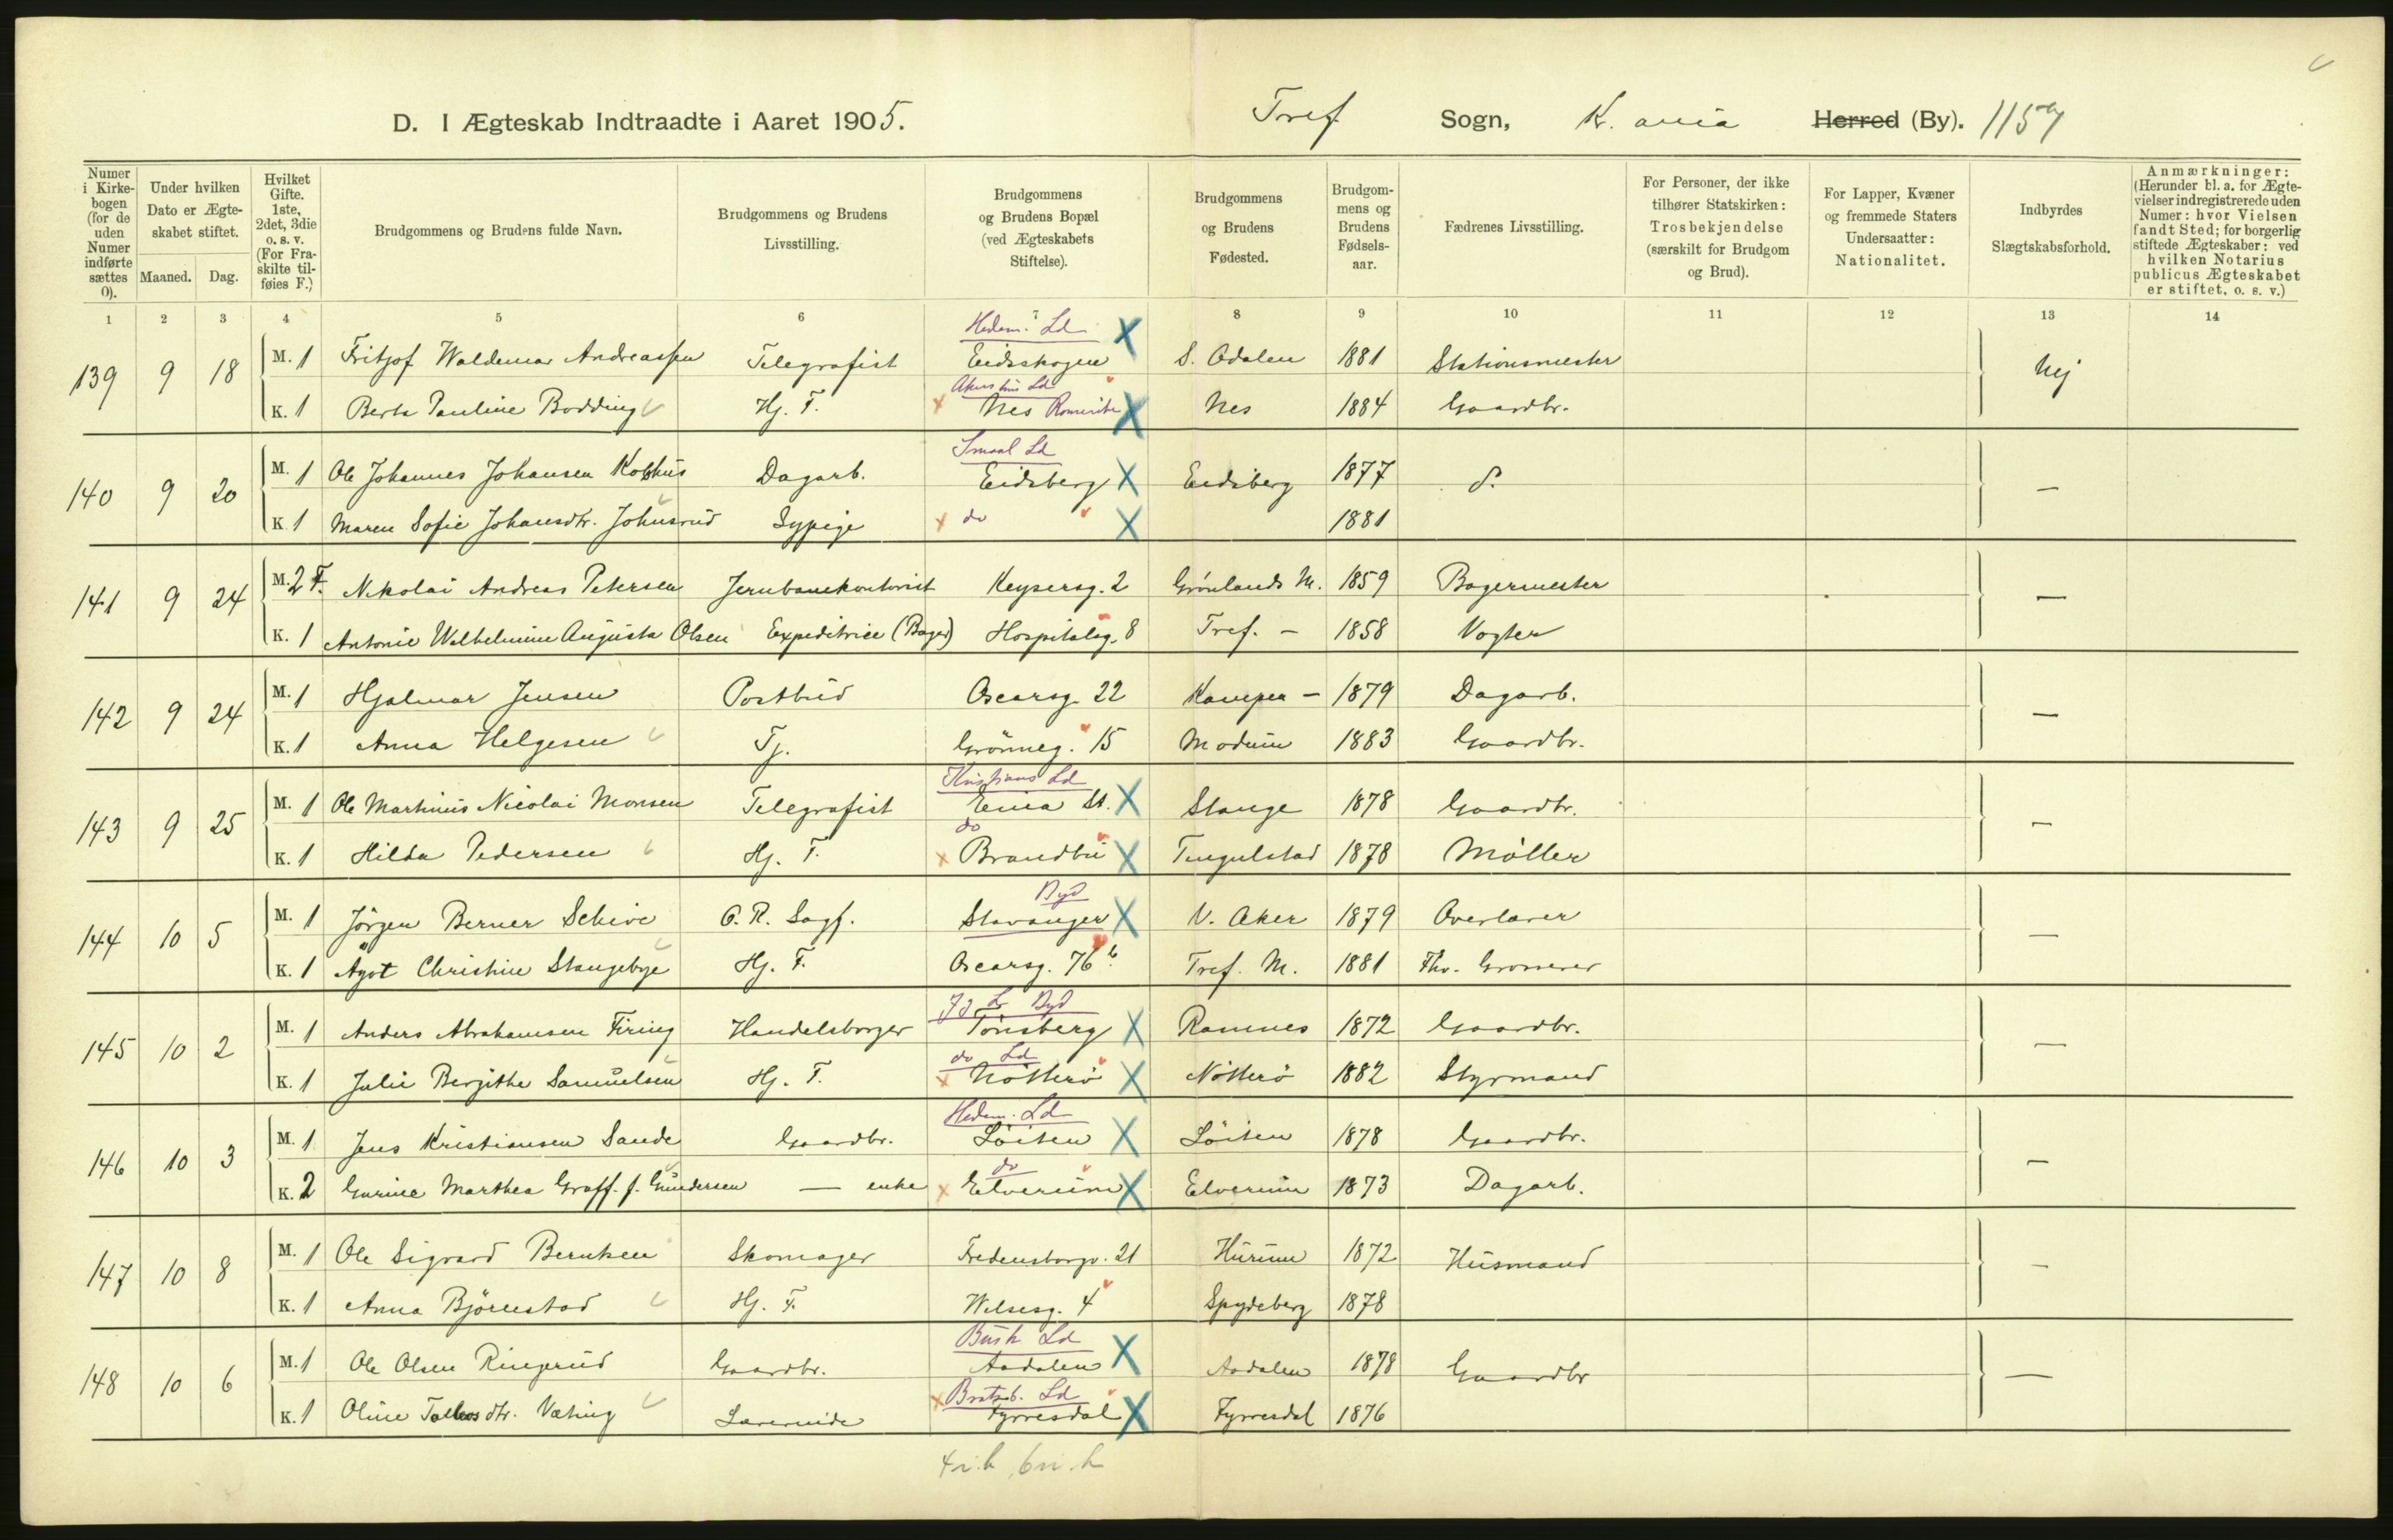 D. I Ægteskab Indtraadte i Aaret 1905. Tref. Sogn, Kr. ania Herred (By). 1157
Numer i Kirkebogen (for de uden Numer indførte sættes 0).
Under hvilken Dato er Ægteskabet stiftet.
Maaned. Dag.
Hvilket Gifte. 1ste, 2det, 3die o. s. v. (For Fraskilte tilføies F.)
Brudgommens og Brudens fulde Navn.
Brudgommens og Brudens Livsstilling.
Brudgommens og Brudens Bopæl (ved Ægteskabets Stiftelse).
Brudgommens og Brudens Fødested.
Brudgommens og Brudens Fødselsaar.
Fædrenes Livsstilling.
For Personer, der ikke tilhører Statskirken: Trosbekjendelse (særskilt for Brudgom og Brud).
For Lapper, Kvæner og fremmede Staters Undersaatter: Nationalitet.
Indbyrdes Slægtskabsforhold.
Anmærkninger: (Herunder bl. a. for Ægtevielser indregistrerede uden Numer: hvor Vielsen fandt Sted; for borgerlig stiftede Ægteskaber: ved hvilken Notarius publicus Ægteskabet er stiftet, o. s. v.)
1 2 3 4 5 6 7 8 9 10 11 12 13 14
Hedem. Ld
139 9 18 M. 1 Fritjof Waldemar Andreassen Telegrafist Eidsskogen S. Odalen 1881 Stationsmester Nej
Akershus Ld
K. 1 Berta Pauline Bodding Hj. F. Nes Romerike Nes 1884 Gaardbr.
Smaal Ld
140 9 20 M. 1 Ole Johannes Johansen Kobbhus Dagarb. Eidsberg Eidsberg 1877 S. —
K. 1 Maren Sofie Johansdtr. Johusrud Sypige do 1881
141 9 24 M. 2 F. Nikolai Andreas Petersen Jernbanekontorist Keysersg. 2 Grønlands M. 1859 Bagermester —
K. 1 Antonie Wilhelmine Augusta Olsen Expeditrice (Bager) Hospitalsg. 8 Tref. — 1858 Vogter
142 9 24 M. 1 Hjalmar Jensen Postbud Oscarsg. 22 Kampen — 1879 Dagarb. —
K. 1 Anna Helgesen Tj. Grönneg. 15 Modum 1883 Gaardbr.
Kristians Ld
143 9 25 M. 1 Ole Martinius Nicolai Monsen Telegrafist Eina St. Stange 1878 Gaardbr. —
do
K. 1 Hilda Pedersen Hj. F. Brandbu Tingulstad 1878 Møller
Byd
144 10 5 M. 1 Jörgen Berner Schive O. R. Sagf. Stavanger V. Aker 1879 Overlærer —
K. 1 Ågot Christine Stangebye Hj. F. Oscarsg. 76 b. Tref. M. 1881 Fhv. Grosserer
Jg L Byd
145 10 2 M. 1 Anders Abrahamsen Firing Handelsborger Tönsberg Ramnes 1872 Gaardbr. —
do Ld
K. 1 Julie Bergithe Samuelsen Hj. F. Nötterö Nötterö 1882 Styrmand
Hedem. Ld
146 10 3 M. 1 Jens Kristiansen Sande Gaardbr. Löiten Löiten 1878 Gaardbr. —
do
K. 2 Gurine Marthea Graff. f. Gundersen — enke Elverum Elverum 1873 Dagarb.
147 10 8 M. 1 Ole Sigvard Berntsen Skomager Fredensborgv. 21 Hurum 1872 Husmand —
K. 1 Anna Björnstad Hj. F. Wilsesg. 4 Spydeberg 1878
Busk Ld
148 10 6 M. 1 Ole Olsen Ringerud Gaardbr. Aadalen Aadalen 1878 Gaardbr —
Bratsb. Ld
K. 1 Oline Tallevsdtr. Væting Lærerinde Fyrresdal Fyrresdal 1876